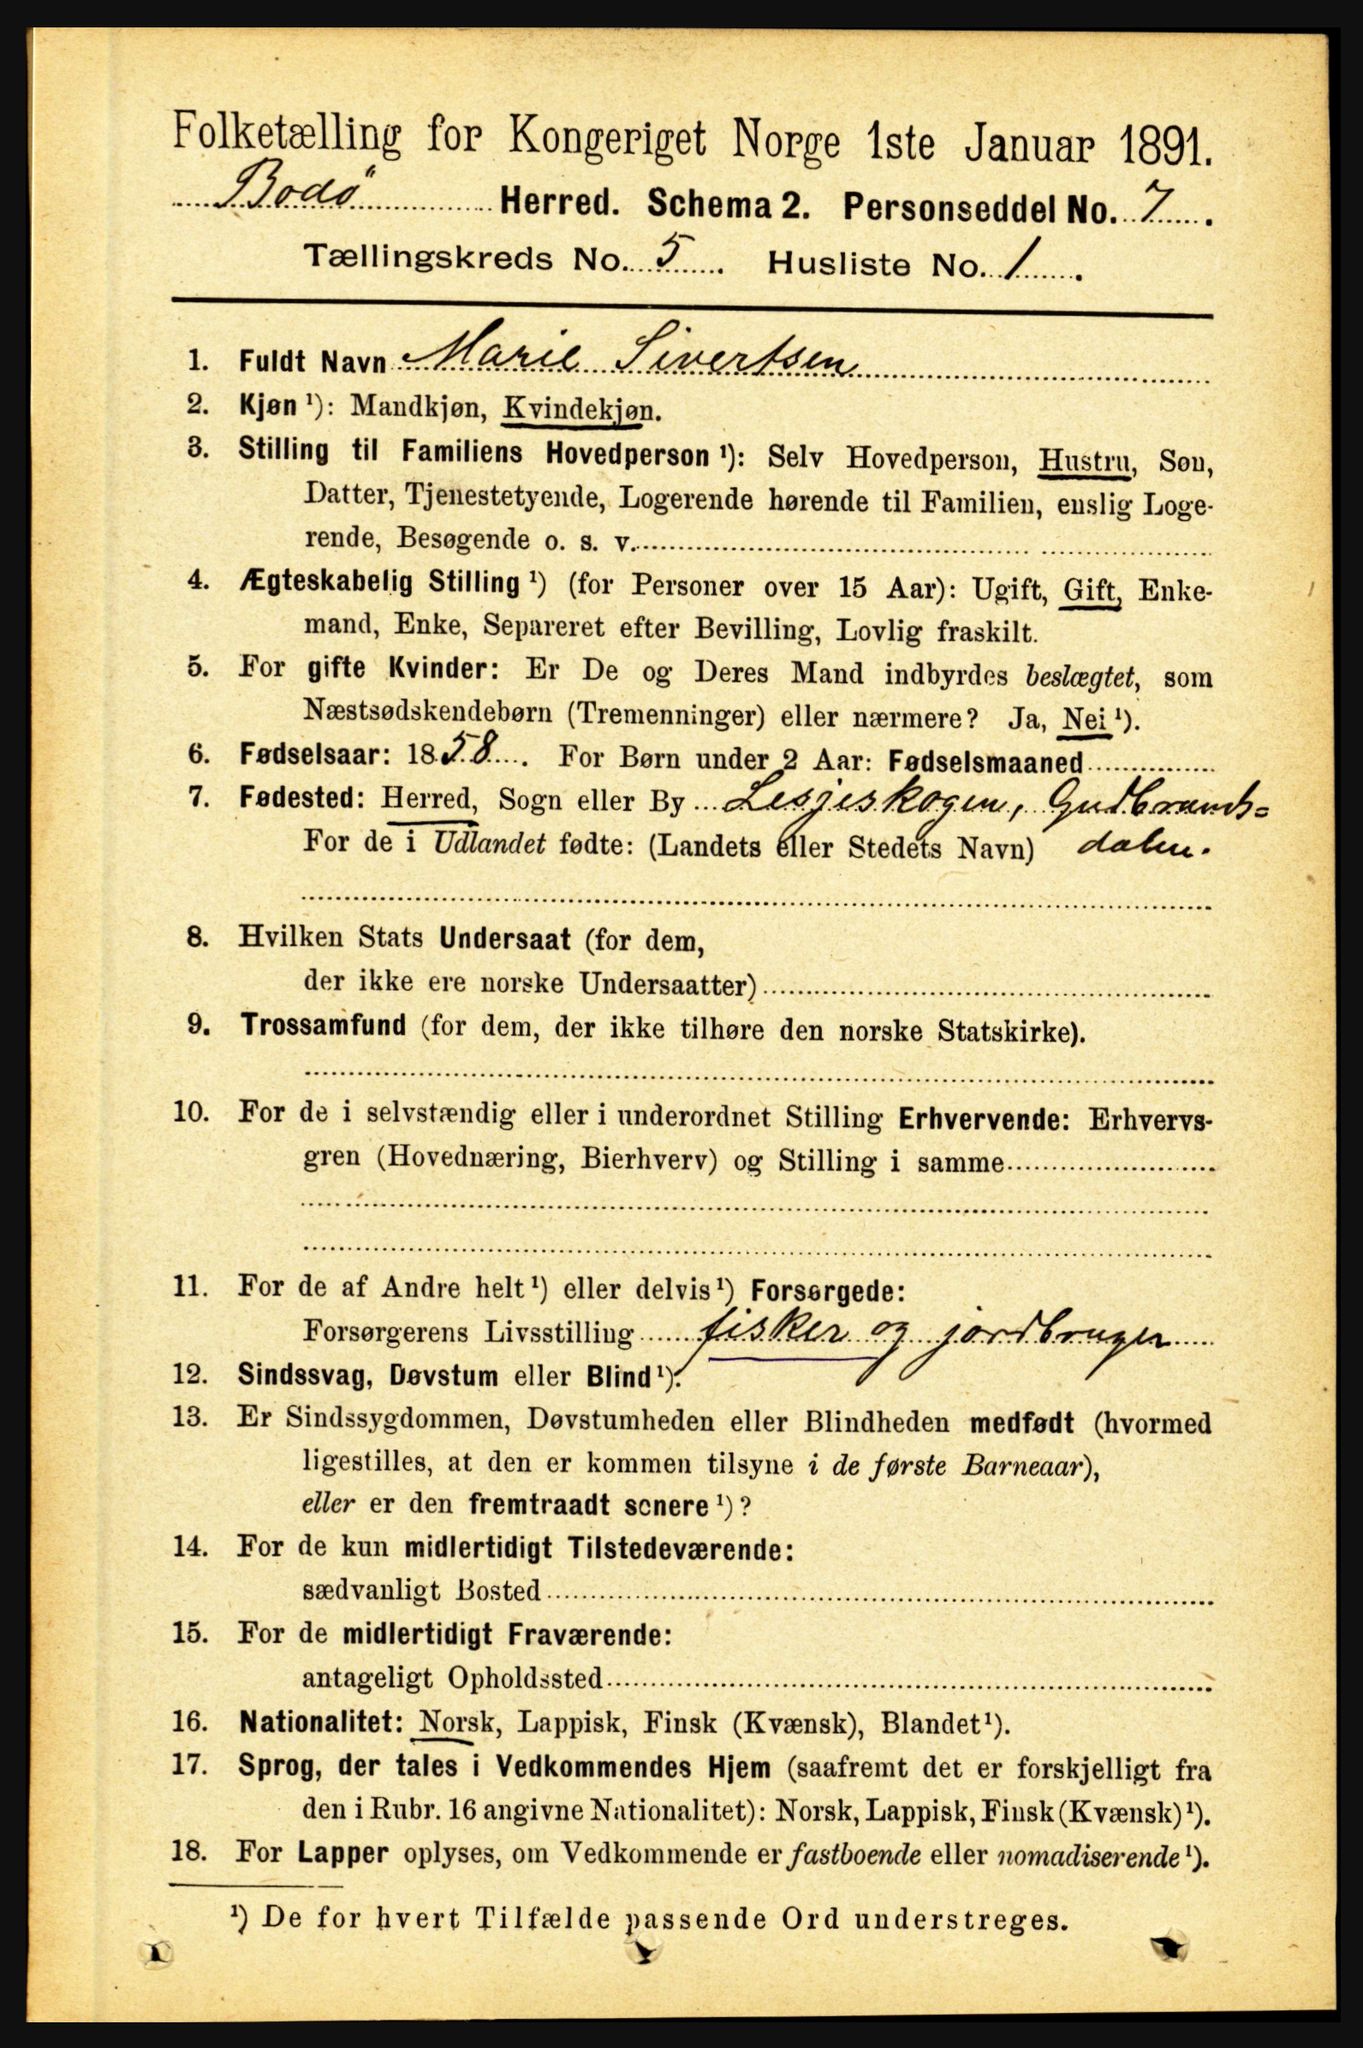 Folketælling for Kongeriget Norge 1ste Januar 1891.
Bodø Herred. Schema 2. Personseddel No. 7.
Tællingskreds No. 5. Husliste No. 1.
1. Fuldt Navn Marie Sivertsen
2. Kjøn ¹): Mandkjøn, Kvindekjøn.
3. Stilling til Familiens Hovedperson ¹): Selv Hovedperson, Hustru, Søn,
Datter, Tjenestetyende, Logerende hørende til Familien, enslig Loge-
rende, Besøgende o. s. v.
4. Ægteskabelig Stilling ¹) (for Personer over 15 Aar): Ugift, Gift, Enke-
mand, Enke, Separeret efter Bevilling, Lovlig fraskilt.
5. For gifte Kvinder: Er De og Deres Mand indbyrdes beslægtet, som
Næstsødskendebørn (Tremenninger) eller nærmere? Ja, Nei ¹).
6. Fødselsaar: 1858. For Børn under 2 Aar: Fødselsmaaned
7. Fødested: Herred, Sogn eller By Lesjeskogen, Gudbrands=
For de i Udlandet fødte: (Landets eller Stedets Navn) dalen.
8. Hvilken Stats Undersaat (for dem,
der ikke ere norske Undersaatter)
9. Trossamfund (for dem, der ikke tilhøre den norske Statskirke).
10. For de i selvstændig eller i underordnet Stilling Erhvervende: Erhvervs-
gren (Hovednæring, Bierhverv) og Stilling i samme
11. For de af Andre helt ¹) eller delvis ¹) Forsørgede:
Forsørgerens Livsstilling fisker og jordbruger
12. Sindssvag, Døvstum eller Blind ¹).
13. Er Sindssygdommen, Døvstumheden eller Blindheden medfødt (hvormed
ligestilles, at den er kommen tilsyne i de første Barneaar),
eller er den fremtraadt senere ¹)?
14. For de kun midlertidigt Tilstedeværende:
sædvanligt Bosted
15. For de midlertidigt Fraværende:
antageligt Opholdssted
16. Nationalitet: Norsk, Lappisk, Finsk (Kvænsk), Blandet ¹).
17. Sprog, der tales i Vedkommendes Hjem (saafremt det er forskjelligt fra
den i Rubr. 16 angivne Nationalitet): Norsk, Lappisk, Finsk (Kvænsk) ¹).
18. For Lapper oplyses, om Vedkommende er fastboende eller nomadiserende ¹).
¹) De for hvert Tilfælde passende Ord understreges.